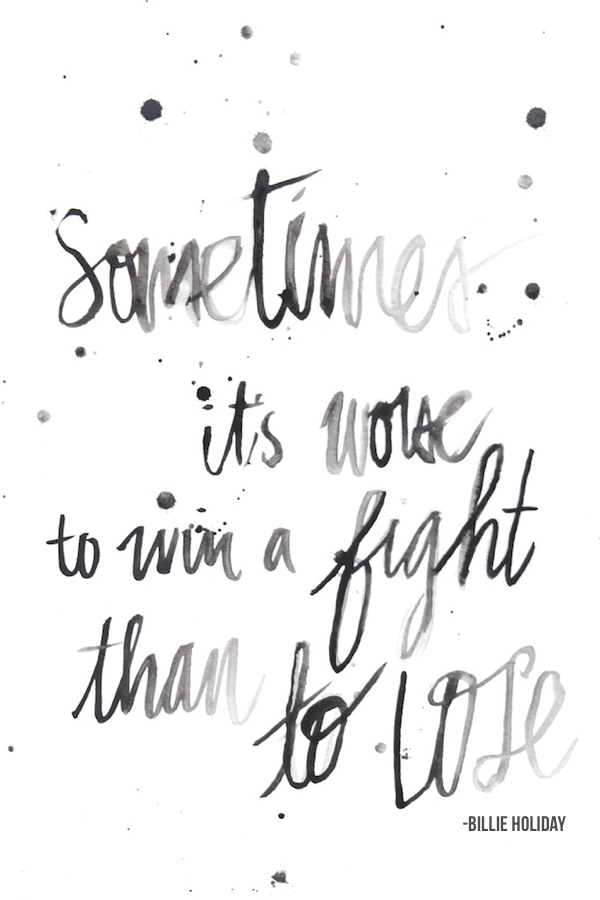 Sometimes
it's worse
to win a fight
than to LOSe
-BILLIE HOLIDAY